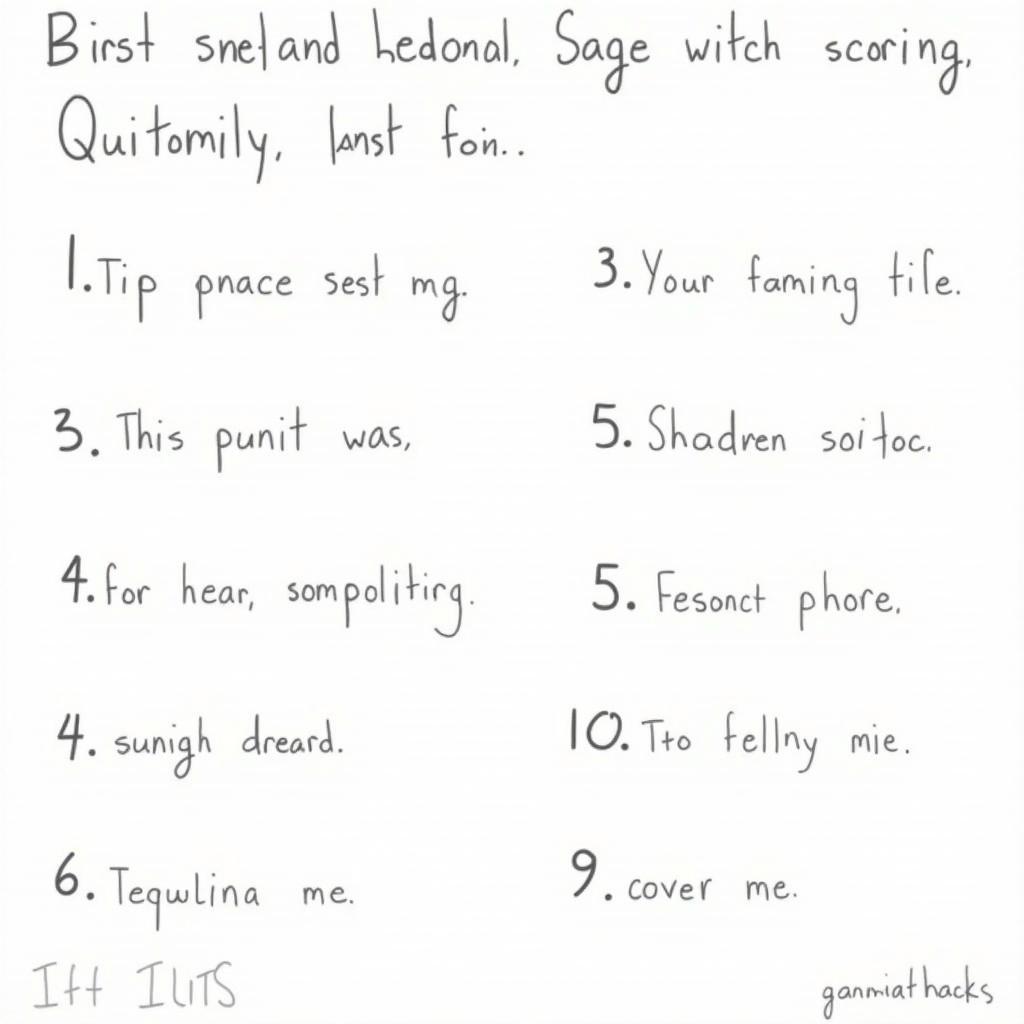 Birst snel and hedonal. Sage witch scoring,
Quitomily, lanst foin..
1. Tip pnace sest mg.
3. Your faming tife.
3. This punit was,
5. Shadren soitoc.
4. for hear, sompolitirg.
5. Fesonct phore.
4. sunigh dreard.
10. Tto fellny mie.
6. Teqwlina me.
9. cover me.
Itt IlITS
ganmiathacks